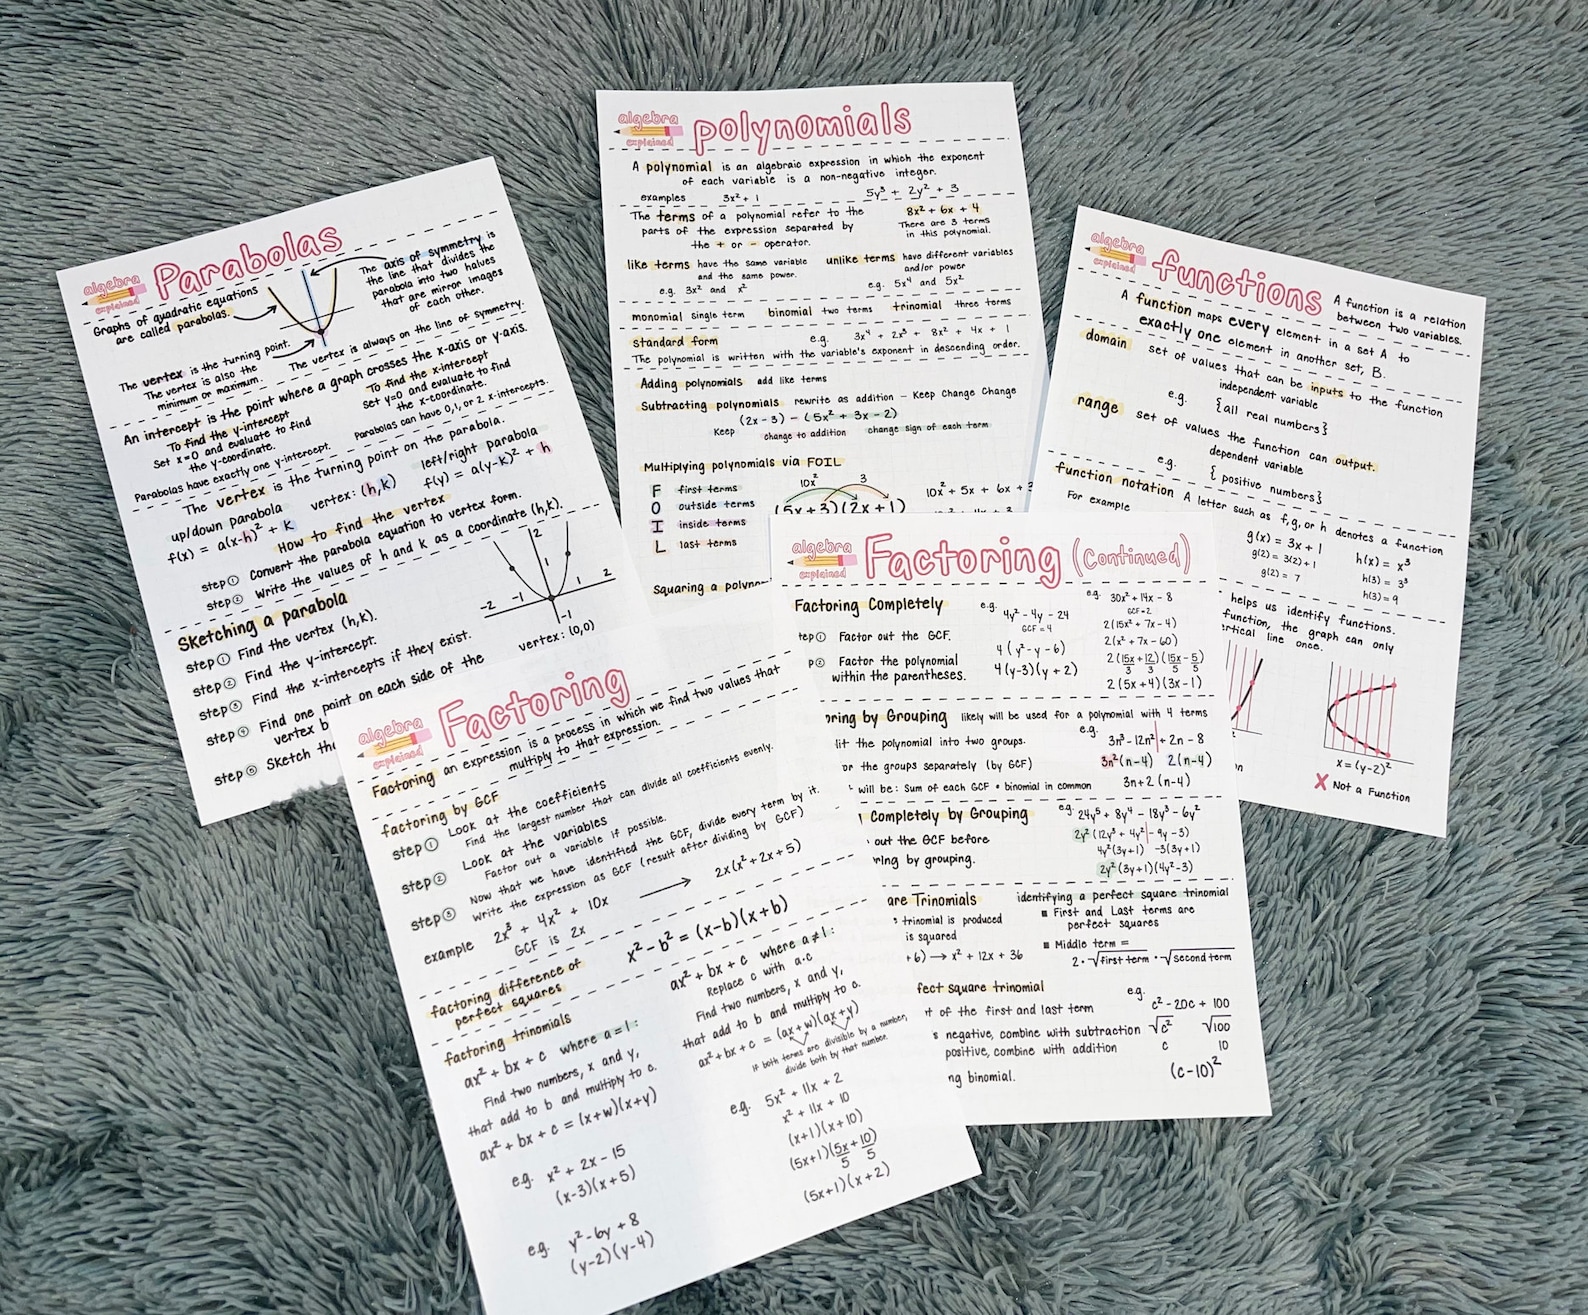 algebra
explained
Parabolas
Graphs of quadratic equations
are called parabolas.
The axis of symmetry is
the line that divides the
parabola into two halves
that are mirror images
of each other.
The vertex is the turning point.
The vertex is also the
minimum or maximum.
The vertex is always on the line of symmetry.
An intercept is the point where a graph crosses the x-axis or y-axis.
To find the y-intercept
Set x=0 and evaluate to find
the y-coordinate.
To find the x-intercept
Set y=0 and evaluate to find
the x-coordinate.
Parabolas have exactly one y-intercept.
Parabolas can have 0,1, or 2 x-intercepts.
The vertex is the turning point on the parabola.
up/down parabola
f(x) = a(x-h)² + k
vertex: (h,k)
left/right parabola
f(y) = a(y-k)² + h
How to find the vertex
step ① Convert the parabola equation to vertex form.
step ② Write the values of h and k as a coordinate (h,k).
Sketching a parabola
step ① Find the vertex (h,k).
step ② Find the y-intercept.
step ③ Find the x-intercepts if they exist.
step ④ Find one point on each side of the
vertex b
step ⑤ Sketch th
2
1
-2 -1 1 2
-1
vertex: (0,0)
algebra
explained
polynomials
A polynomial is an algebraic expression in which the exponent
of each variable is a non-negative integer.
examples 3x² + 1 5y³ + 2y² + 3
The terms of a polynomial refer to the
parts of the expression separated by
the + or - operator.
8x² + 6x + 4
There are 3 terms
in this polynomial.
like terms have the same variable
and the same power.
e.g. 3x² and x²
unlike terms have different variables
and/or power
e.g. 5x⁴ and 5x²
monomial single term binomial two terms trinomial three terms
standard form e.g. 3x⁴ + 2x³ + 8x² + 4x + 1
The polynomial is written with the variable's exponent in descending order.
Adding polynomials add like terms
Subtracting polynomials rewrite as addition - Keep Change Change
(2x - 3) - (5x² + 3x - 2)
Keep change to addition change sign of each term
Multiplying polynomials via FOIL
F first terms
O outside terms
I inside terms
L last terms
10x² 3
(5x+3)(2x+1)
10x² + 5x + 6x + 3
Squaring a polyno
algebra
explained
functions
A function is a relation
between two variables.
A function maps every element in a set A to
exactly one element in another set, B.
domain set of values that can be inputs to the function
independent variable
e.g. {all real numbers}
range set of values the function can output.
dependent variable
e.g. { positive numbers}
function notation A letter such as f,g, or h denotes a function
For example
g(x) = 3x + 1
g(2) = 3(2)+1
g(2) = 7
h(x) = x³
h(3) = 3³
h(3) = 9
helps us identify functions.
function, the graph can only
ertical line once.
x = (y-2)²
✗ Not a Function
algebra
explained
Factoring
Factoring an expression is a process in which we find two values that
multiply to that expression.
factoring by GCF
step ① Look at the coefficients
Find the largest number that can divide all coefficients evenly.
step ② Look at the variables
Factor out a variable if possible.
step ③ Now that we have identified the GCF, divide every term by it.
Write the expression as GCF (result after dividing by GCF)
example 2x³ + 4x² + 10x
GCF is 2x
2x(x² + 2x + 5)
factoring difference of
perfect squares
x² - b² = (x-b)(x+b)
factoring trinomials
ax² + bx + c where a = 1 :
Find two numbers, x and y,
that add to b and multiply to c.
ax² + bx + c = (x+w)(x+y)
e.g. x² + 2x - 15
(x-3)(x+5)
e.g. y² - 6y + 8
(y-2)(y-4)
ax² + bx + c where a ≠ 1 :
Replace c with a·c
Find two numbers, x and y,
that add to b and multiply to c.
ax² + bx + c = (ax+w)(ax+y)
If both terms are divisible by a number,
divide both by that number.
e.g. 5x² + 11x + 2
x² + 11x + 10
(x+1)(x+10)
(5x+1)(5x+10)
5 5
(5x+1)(x+2)
algebra
explained
Factoring (Continued)
Factoring Completely
tep ① Factor out the GCF.
p ② Factor the polynomial
within the parentheses.
e.g. 4y² - 4y - 24
GCF = 4
4(y² - y - 6)
4(y-3)(y+2)
e.g. 30x² + 14x - 8
GCF=2
2(15x² + 7x - 4)
2(x² + 7x - 60)
2(15x+12)(15x-5)
3 3 5 5
2(5x+4)(3x-1)
oring by Grouping likely will be used for a polynomial with 4 terms
lit the polynomial into two groups.
or the groups separately (by GCF)
will be: Sum of each GCF • binomial in common
e.g. 3n³ - 12n² + 2n - 8
3n²(n-4) 2(n-4)
3n+2(n-4)
Completely by Grouping
out the GCF before
ring by grouping.
e.g. 24y⁵ + 8y⁴ - 18y³ - 6y²
2y²(12y³ + 4y² - 9y - 3)
4y²(3y+1) -3(3y+1)
2y²(3y+1)(4y²-3)
are Trinomials
trinomial is produced
is squared
+6) → x² + 12x + 36
identifying a perfect square trinomial
■ First and Last terms are
perfect squares
■ Middle term =
2 · √first term · √second term
fect square trinomial
t of the first and last term
s negative, combine with subtraction
positive, combine with addition
ng binomial.
e.g. c² - 20c + 100
√c² √100
c 10
(c-10)²